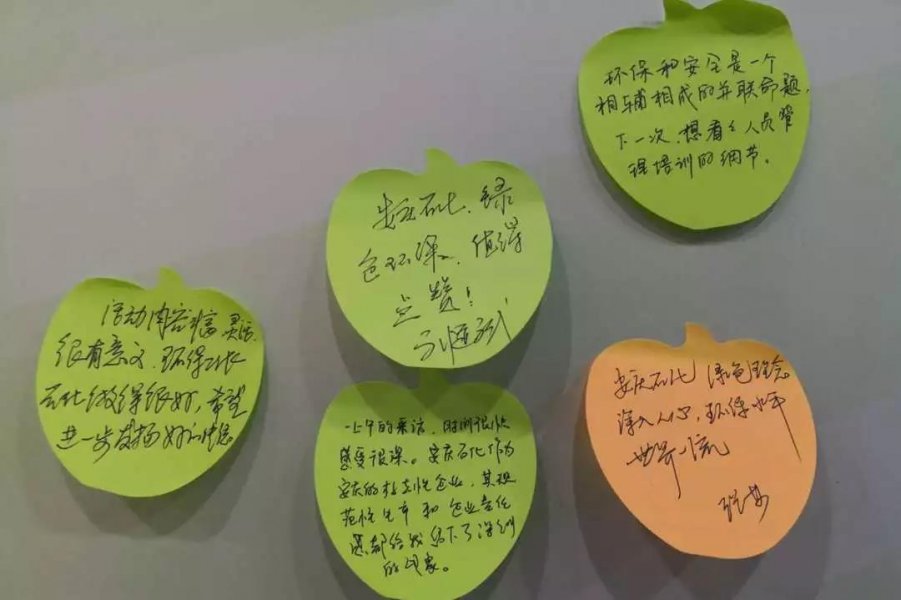 环保和安全是一个
相辅相成的并联命题,
下一次,想看看人员管
理培训的细节。
安庆石化,绿
色环保,值得
点赞!
活动内容丰富
很有意义,环保
石化做得很好,希望
进一步发扬好的
一上午的采访,时间很快
感受很深。安庆石化作为
安庆的标志性企业,其规
范性生产和企业责任
感都给我留下了深刻
的印象。
安庆石化 绿色理念
深入人心,环保水平
世界一流